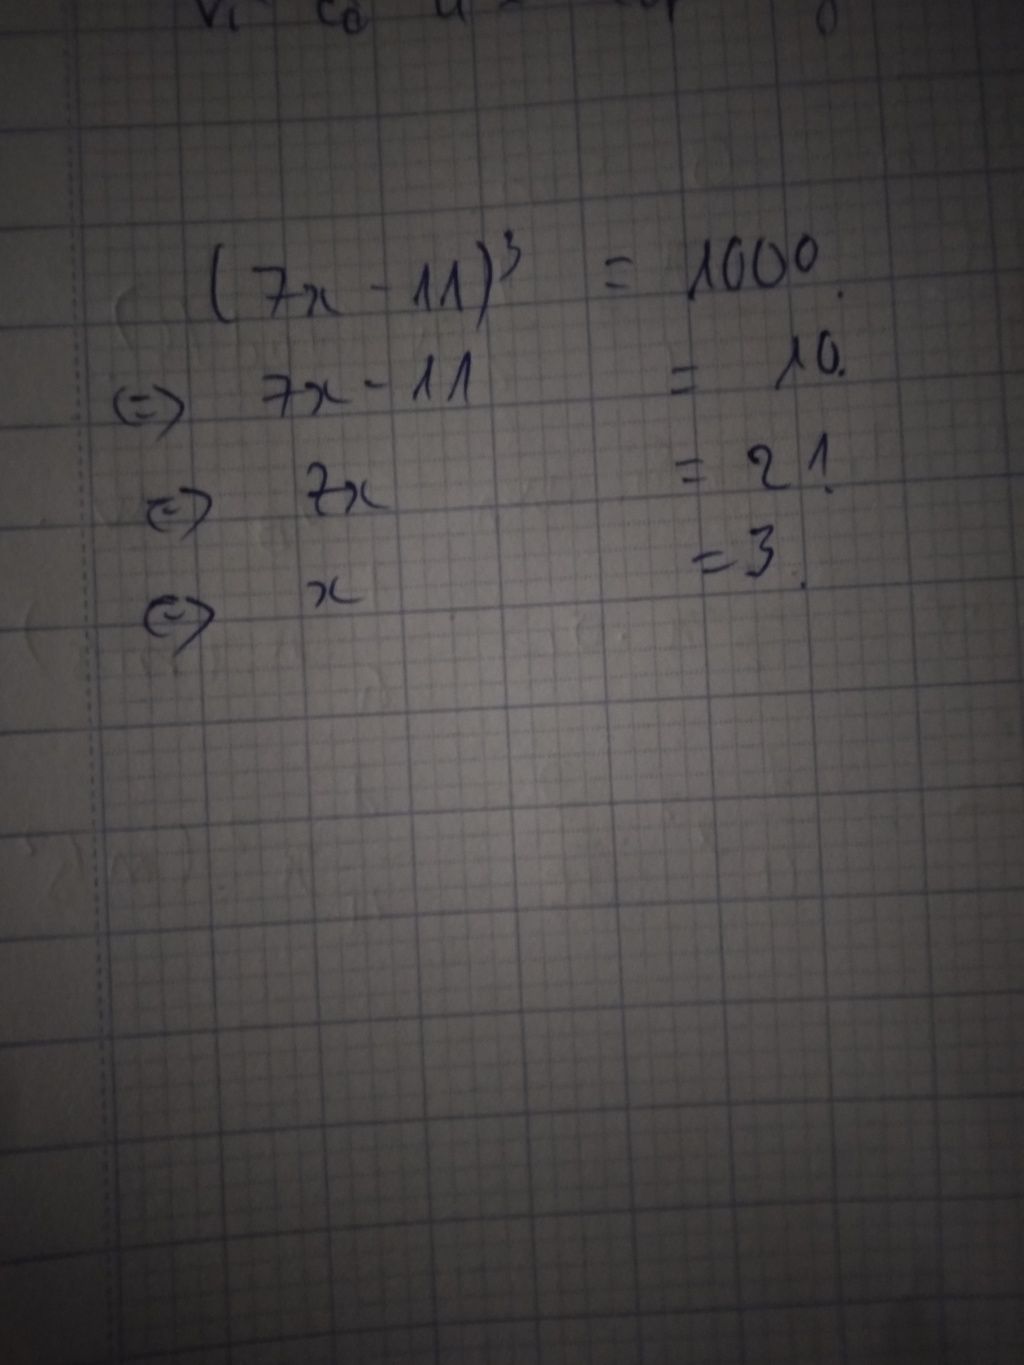 (7x - 11)³ = 1000.
(=) 7x - 11 = 10.
(=) 7x = 21.
(=) x = 3.